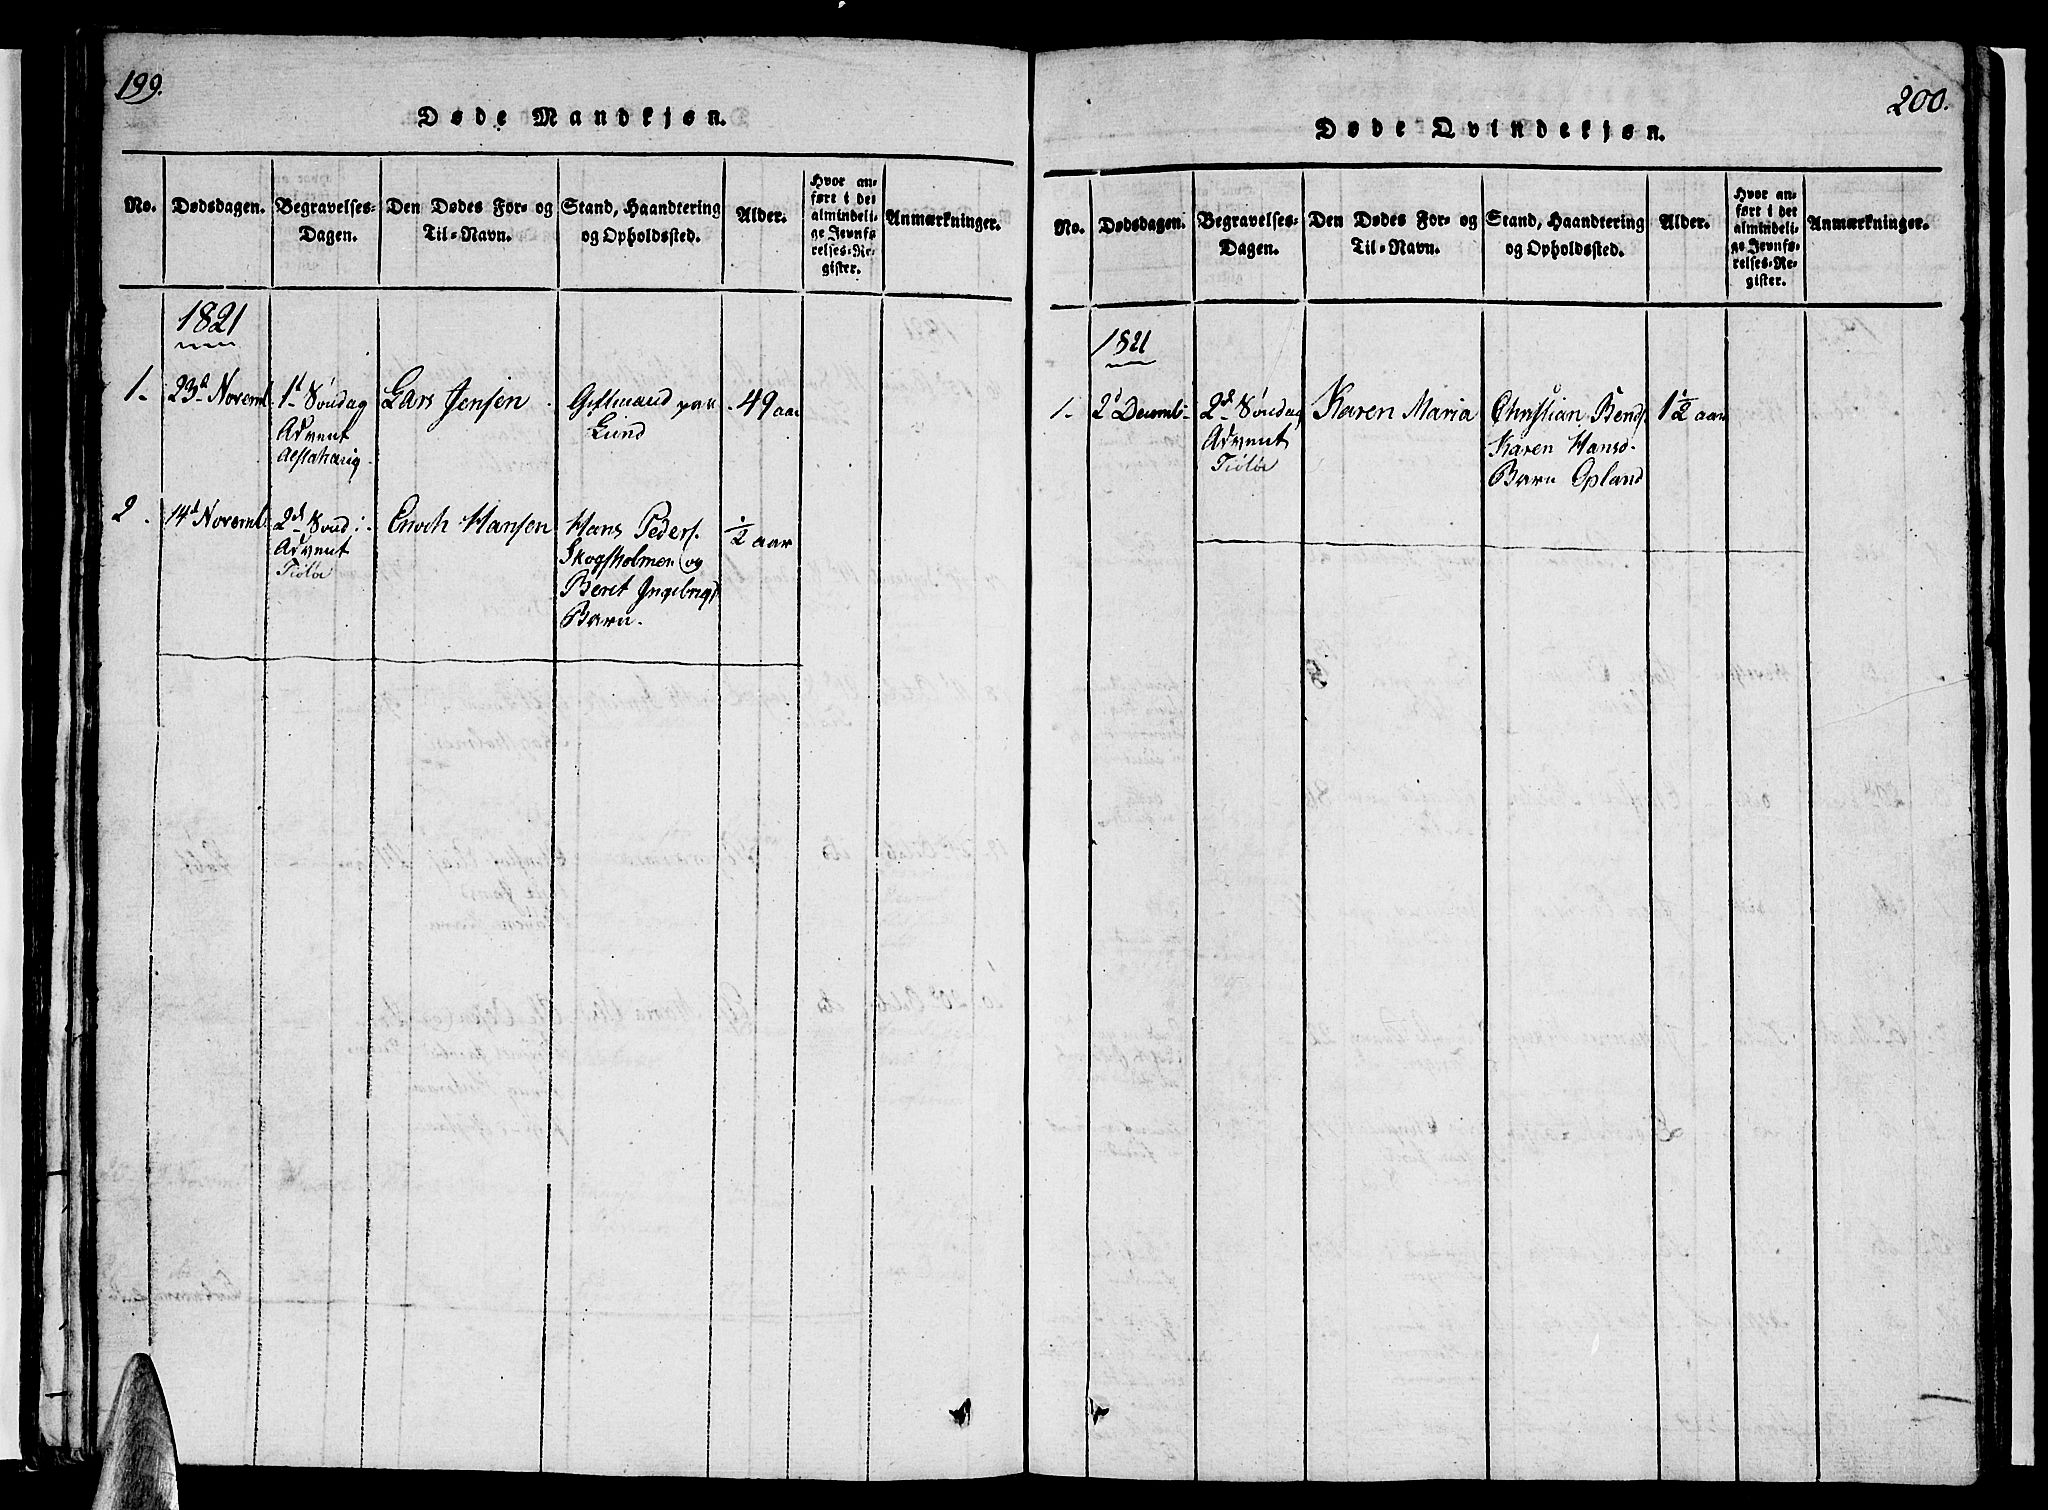 199.
Døde Mandkjøn.
No. Dødsdagen. Begravelses-Dagen. Den Dødes For- og Til-Navn. Stand, Haandtering og Opholdssted. Alder. Hvor anført i det almindelige Jevnførelses-Register. Anmærkninger.
1821
1. 23d Novemb 1st Søndag Lars Jensen Giftmand paa 49 aar
Advent Lund
Alstahoug
2. 14d Novemb 2d Sønd: Enoch Hansen Hans Peders. 1/2 aar
Advent Skogsholmen og
Tiøtøe Beret Ingebrigts
Barn.
200.
Døde Qvindekjøn.
No. Dødsdagen. Begravelses-Dagen. Den Dødes For- og Til-Navn. Stand, Haandtering og Opholdssted. Alder. Hvor anført i det almindelige Jevnførelses-Register. Anmærkninger.
1821
1. 2d Decemb. 2d Søndag Karen Maria Christian Bends. 1 1/2 aar
Advent Karen Hansd.
Tiøtøe Barn Opland